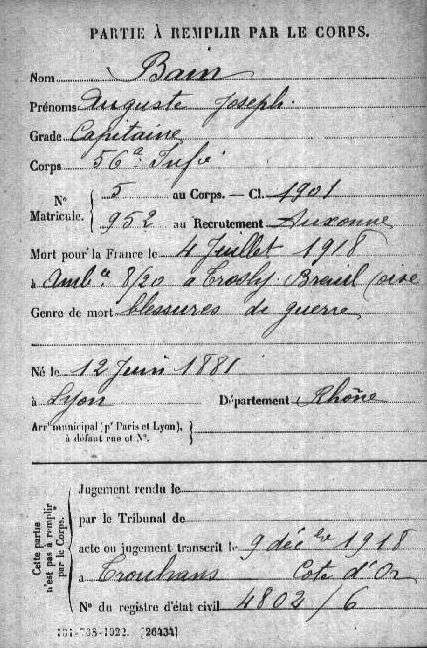 PARTIE À REMPLIR PAR LE CORPS.
Nom Bain
Prénoms Auguste Joseph.
Grade Capitaine
Corps 56e Infie
N° Matricule. { 5 au Corps. — Cl. 1901
952 au Recrutement Auxonne
Mort pour la France le 4 Juillet 1918
à Ambce 8/20 à Trosly-Breuil (oise
Genre de mort blessures de guerre
Né le 12 Juin 1881
à Lyon Département Rhône
Arrt municipal (pr Paris et Lyon),
à défaut rue et N°.
Cette partie n'est pas à remplir par le Corps.
Jugement rendu le
par le Tribunal de
acte ou jugement transcrit le 9 décbre 1918
à Trouhans Cote d'Or
N° du registre d'état civil 4802/6
101-708-1922. [26434]